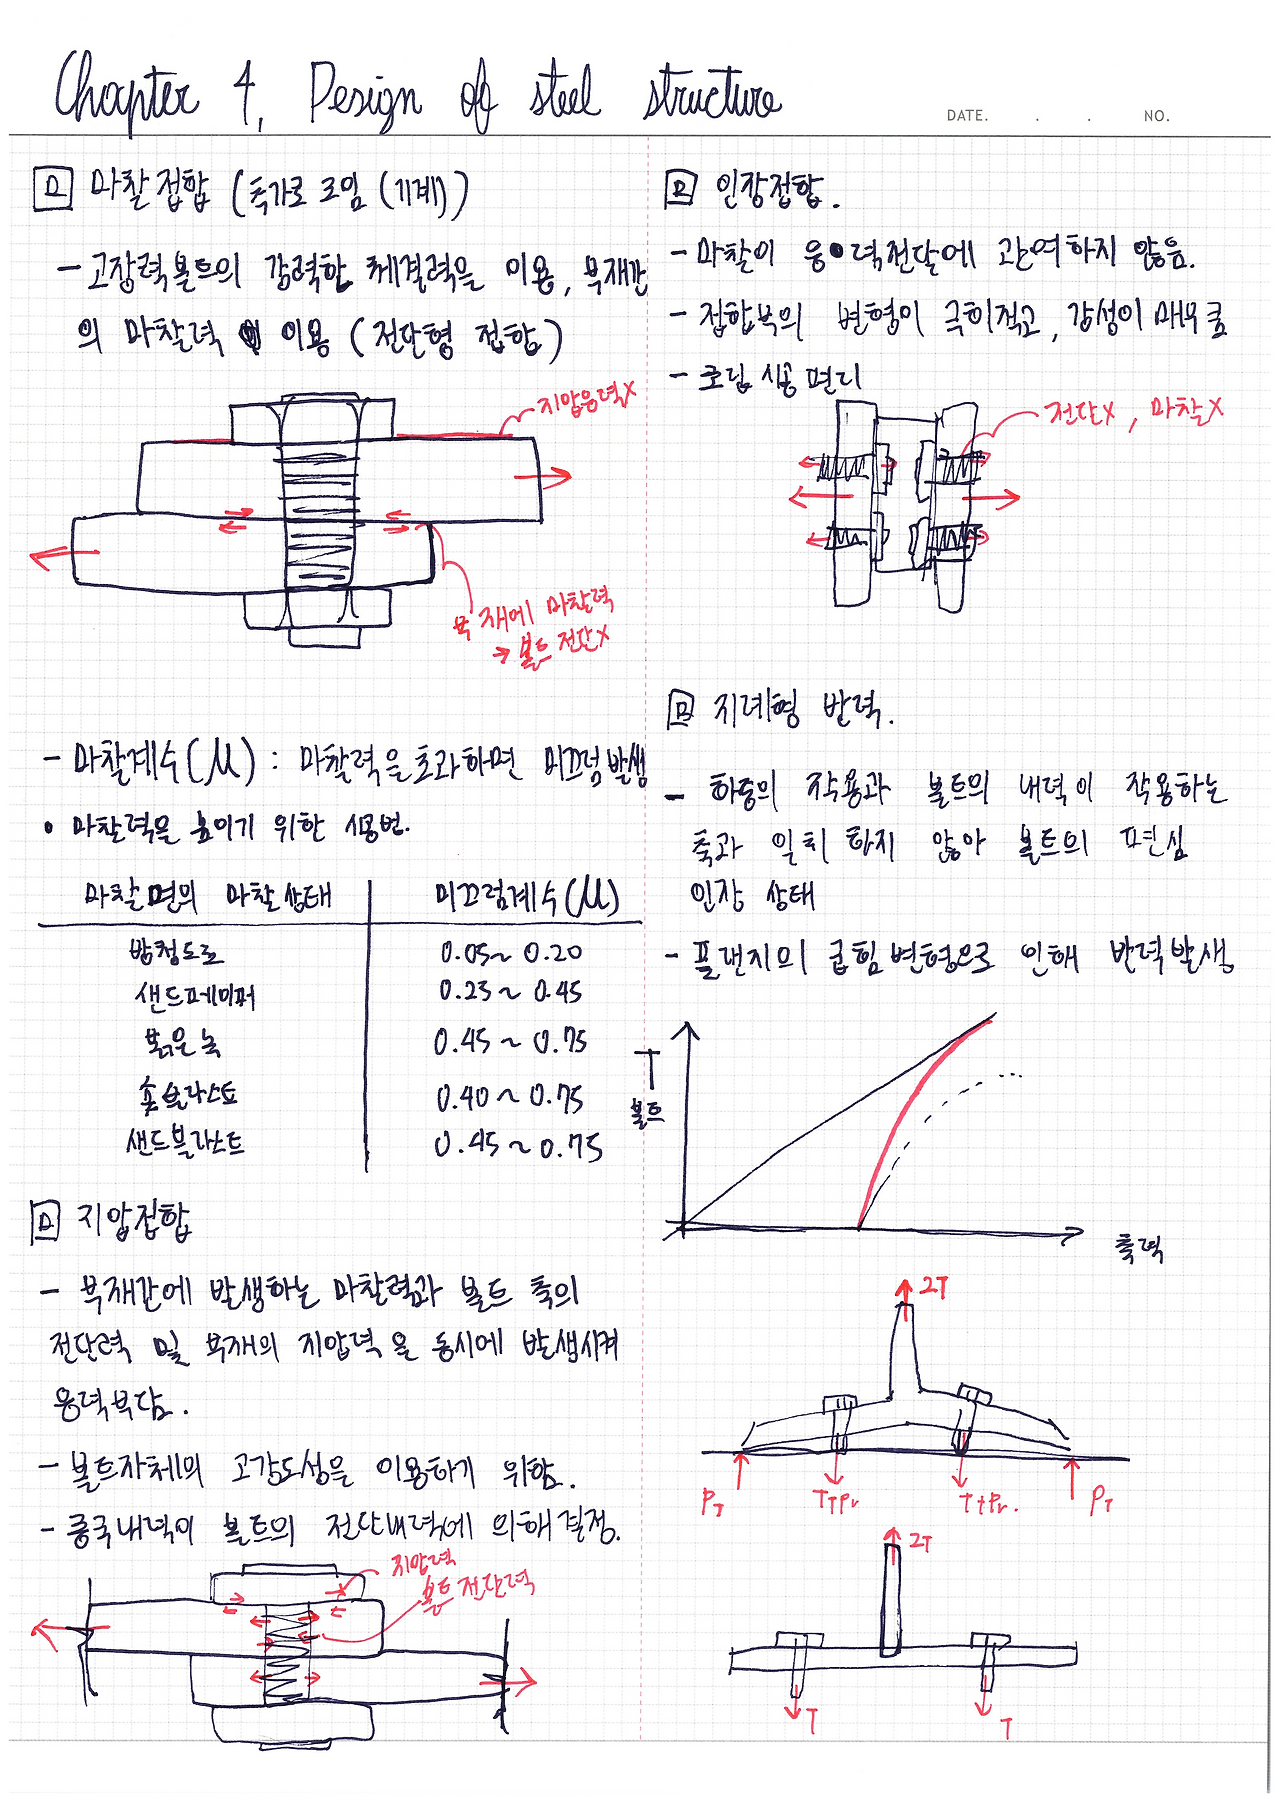 Chapter 4. Design of steel structure
DATE. . . NO.
ㅁ 마찰접합 (축가로 조임 (기계))
- 고장력볼트의 강력한 체결력을 이용, 부재간
의 마찰력 이용 (전단형 접합)
지압응력X
부재에 마찰력
→ 볼트 전단X
- 마찰계수(μ) : 마찰력을 초과하면 미끄럼발생
• 마찰력을 높이기 위한 시공법.
마찰면의 마찰상태 미끄럼계수(μ)
방청도료 0.05~0.20
샌드페이퍼 0.25~0.45
붉은녹 0.45~0.75
숏블라스트 0.40~0.75
샌드블라스트 0.45~0.75
ㅁ 지압접합
- 부재간에 발생하는 마찰력과 볼트 축의
전단력 및 부재의 지압력을 동시에 발생시켜
응력부담.
- 볼트자체의 고강도성을 이용하기 위함.
- 종국내력이 볼트의 전단내력에 의해결정.
지압력
볼트 전단력
ㅁ 인장접합.
- 마찰이 응력전달에 관여하지 않음.
- 접합부의 변형이 극히적고, 강성이 매우 큼
- 조립 시공 편리
전단X, 마찰X
ㅁ 지레형 반력.
- 하중의 작용과 볼트의 내력이 작용하는
축과 일치 하지 않아 볼트의 편심
인장 상태
- 플랜지의 굽힘변형으로 인해 반력발생
T
볼트
출력
2T
Pr T+Pr T+Pr. Pr
2T
T T